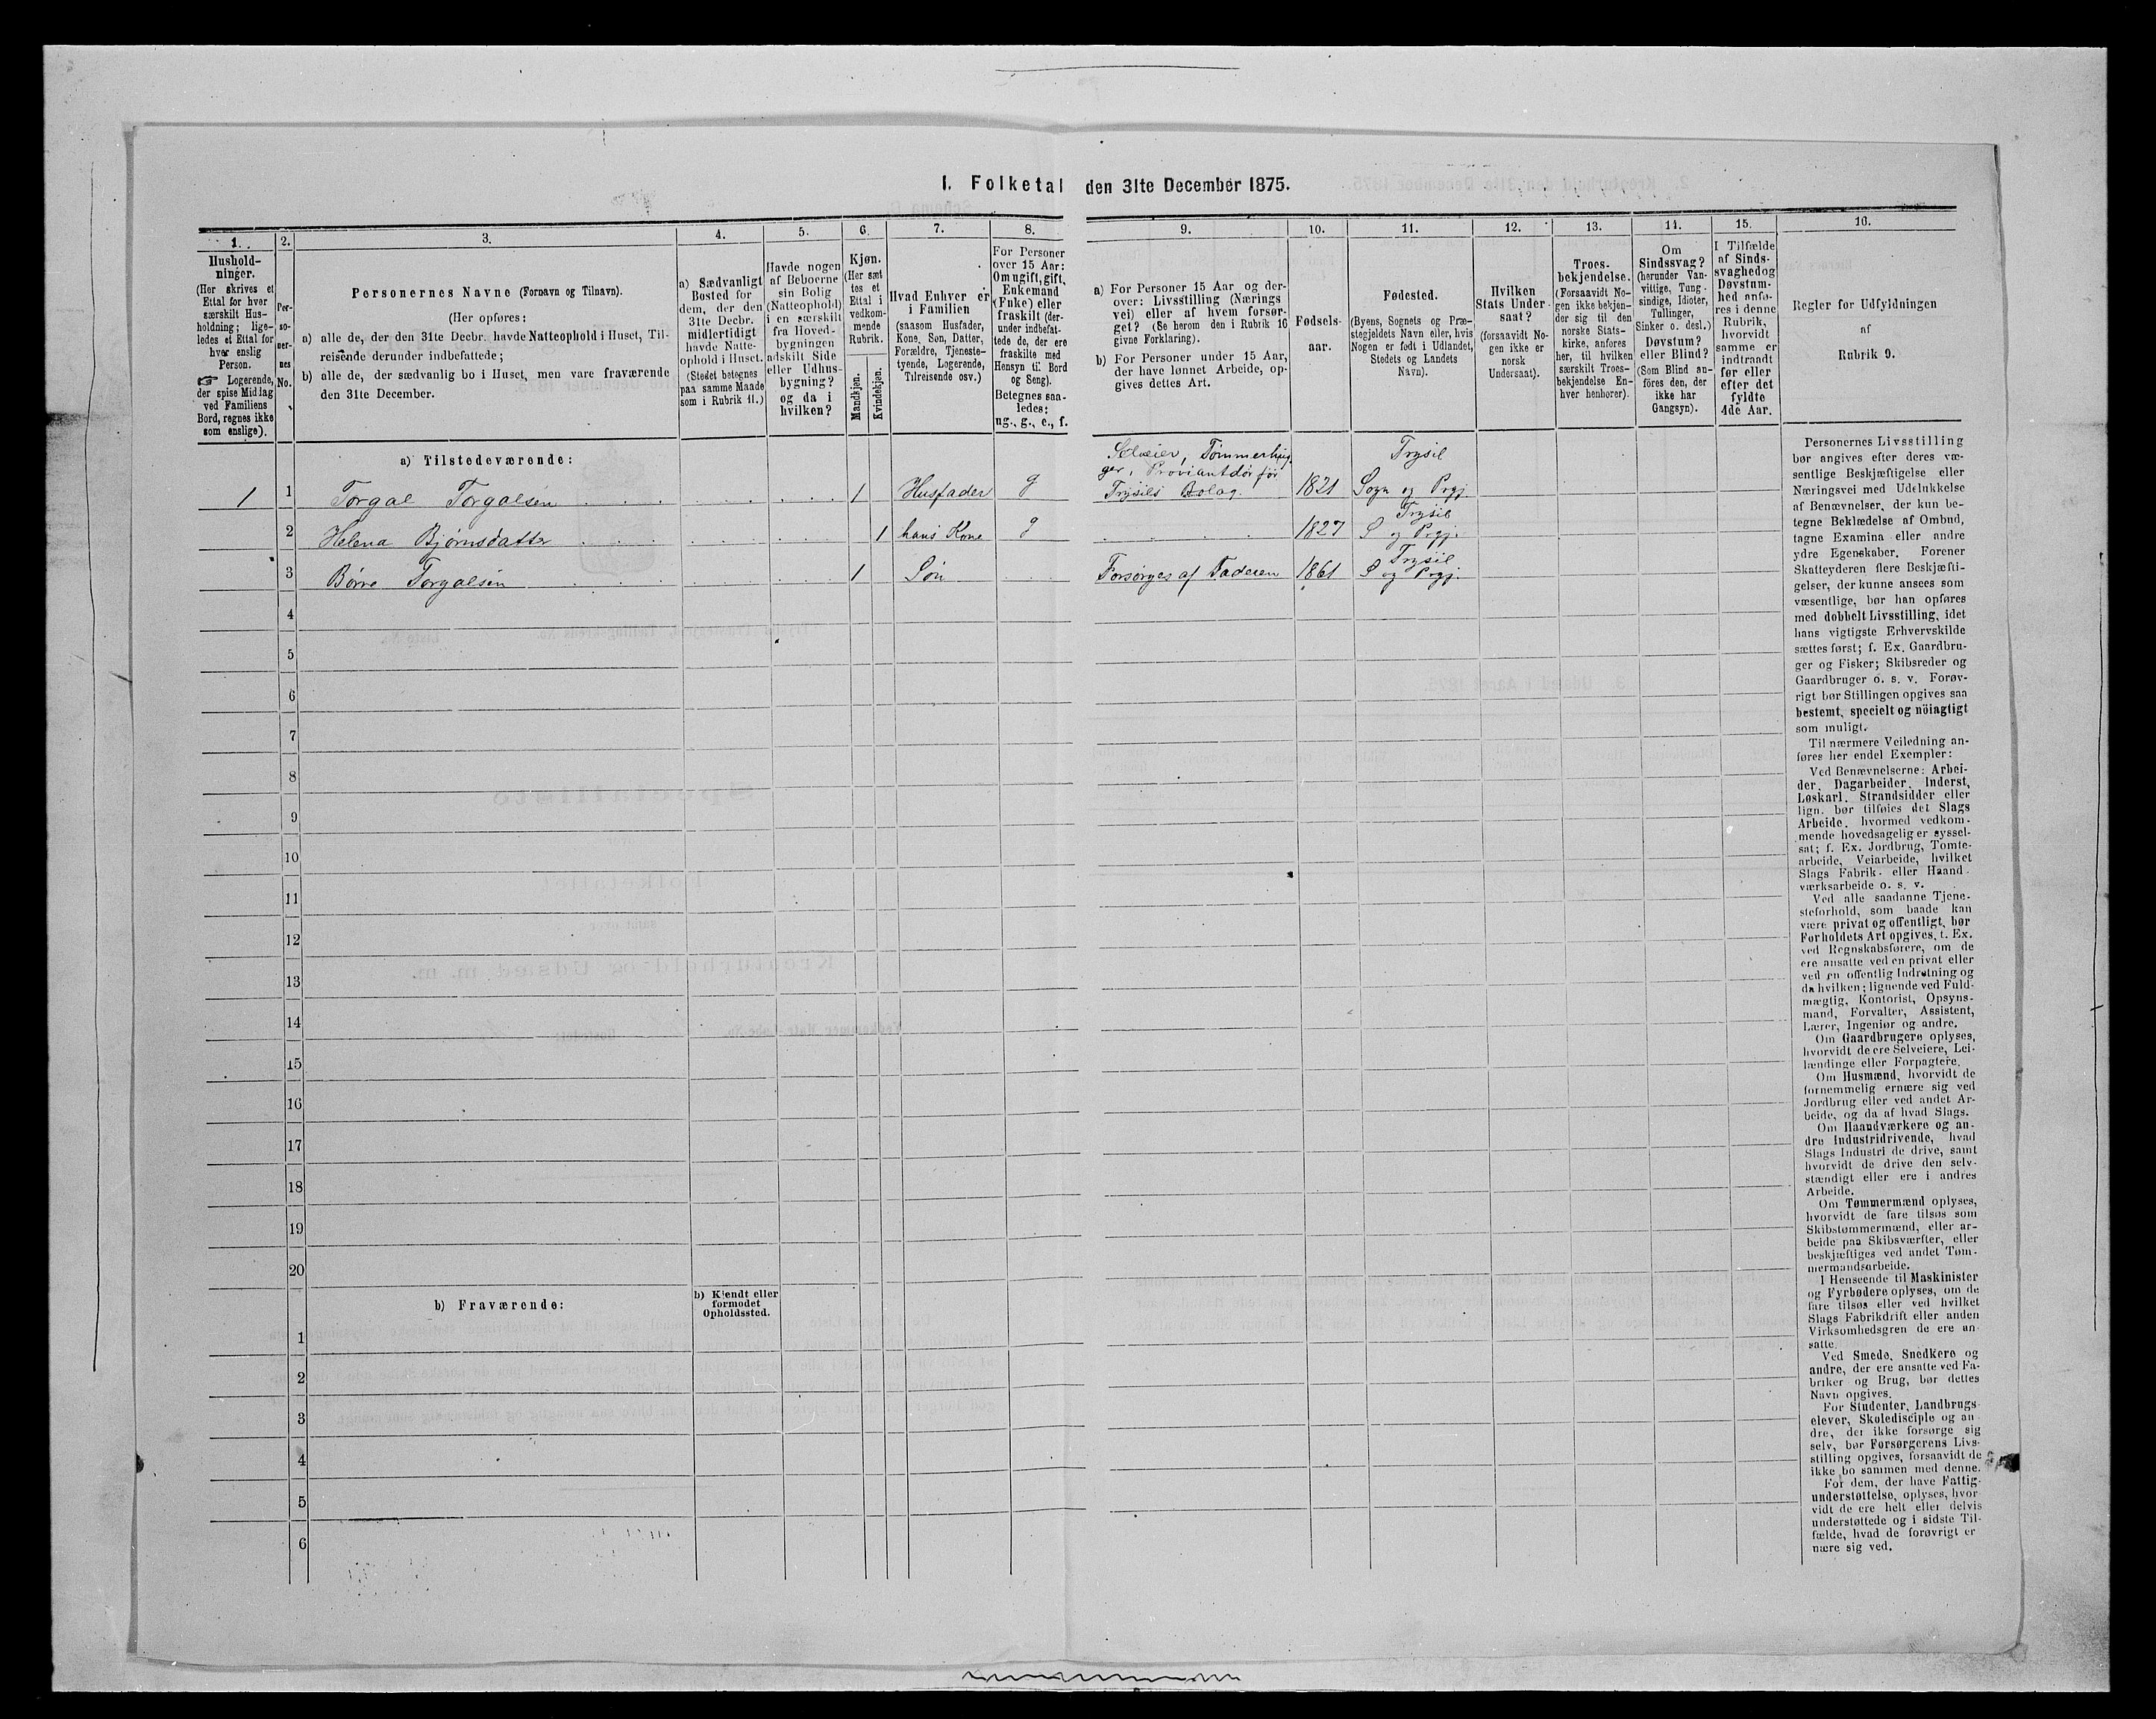 1. Folketal den 31te December 1875.
1.
2.
3.
4.
5.
6.
7.
8.
9.
10.
11.
12.
13.
14.
15.
16.
Hushold-
ninger.
(Her skrives et
Ettal for hver
særskilt Hus-
holdning; lige-
ledes et Ettal for
hver enslig
Person.
☞ Logerende,
der spise Midlag
ved Familiens
Bord, regnes ikke
som enslige).
Per-
so-
ner-
nes
No.
Personernes Navne (Fornavn og Tilnavn).
(Her opføres:
a) alle de, der den 31te Decbr. havde Natteophold i Huset, Til-
reisende derunder indbefattede;
b) alle de, der sædvanlig bo i Huset, men vare fraværende
den 31te December.
a) Sædvanligt
Bosted for
dem, der den
31te Decbr.
midlertidigt
havde Natte-
ophold i Huset.
(Stedet betegnes
paa samme Maade
som i Rubrik 11.)
Havde nogen
af Beboerne
sin Bolig
(Natteophold)
i en særskilt
fra Hoved-
bygningen
adskilt Side
eller Udhus-
bygning?
og da i
hvilken?
Kjøn.
(Her sæt
tes et
Ettal i
vedkom-
mende
Rubrik.
Mandkjøn.
Kvindekjøn.
Hvad Enhver er
i Familien
(saasom Husfader,
Kone, Søn, Datter,
Forældre, Tjeneste-
tyende, Logerende,
Tilreisende osv.)
For Personer
over 15 Aar:
Om ugift, gift,
Enkemand
(Enke) eller
fraskilt (der-
under indbefat-
tede de, der ere
fraskilte med
Hensyn til Bord
og Seng).
Betegnes saa-
ledes:
ug., g., e., f.
a) For Personer 15 Aar og der-
over: Livsstilling (Nærings
vei) eller af hvem forsør-
get? (Se herom den i Rubrik 16
givne Forklaring).
b) For Personer under 15 Aar,
der have lønnet Arbeide, op-
gives dettes Art.
Fødsels-
aar.
Fødested.
(Byens, Sognets og Præ-
stegjeldets Navn eller, hvis
Nogen er født i Udlandet,
Stedets og Landets
Navn).
Hvilken
Stats Under-
saat?
(forsaavidt No-
gen ikke er
norsk
Undersaat).
Troes-
bekjendelse.
(Forsaavidt No-
gen ikke bekjen-
der sig til den
norske Stats-
kirke, anføres
her, til hvilken
særskilt Troes-
bekjendelse En-
hver henhører).
Om
Sindssvag?
(herunder Van-
vittige, Tung-
sindige, Idioter,
Tullinger,
Sinker o. desl.)
Døvstum?
eller Blind?
(Som Blind an-
føres den, der
ikke har
Gangsyn).
I Tilfælde
af Sinds-
svaghed og
Døvstum-
hed anfø-
res i denne
Rubrik,
hvorvidt
samme er
indtraadt
før eller
efter det
fyldte
4de Aar.
Regler for Udfyldningen
af
Rubrik 9.
a) Tilstedeværende:
1 1 Torgal Torgalsen 1 Husfader g Selveier, Tømmerhug-
ger, Proviantdør for
Trysils Bolag. 1821 Trysil
Sogn og Prgj
2 Helena Bjørnsdatter 1 hans Kone g 1827 Trysil
S og Prgj.
3 Børre Torgalsen 1 Søn Forsørges af Faderen 1861 Trysil
S og Prgj.
4
5
6
7
8
9
10
11
12
13
14
15
16
17
18
19
20
b) Fraværende:
b) Kjendt eller
formodet
Opholdssted.
1
2
3
4
5
6
Personernes Livsstilling
bør angives efter deres væ-
sentlige Beskjæftigelse eller
Næringsvei med Udelukkelse
af Benævnelser, der kun be-
tegne Beklædelse af Ombud,
tagne Examina eller andre
ydre Egenskaber. Forener
Skatteyderen flere Beskjæfti-
gelser, der kunne ansees som
væsentlige, bør han opføres
med dobbelt Livsstilling, idet
hans vigtigste Erhvervskilde
sættes først; f. Ex. Gaardbru-
ger og Fisker; Skibsreder og
Gaardbruger o. s. v. Forøv-
rigt bør Stillingen opgives saa
bestemt, specielt og nöiagtigt
som muligt.
Til nærmere Veiledning an-
føres her endel Exempler:
Ved Benævnelserne: Arbei-
der, Dagarbeider, Inderst,
Løskarl, Strandsidder eller
lign. bør tilføies det Slags
Arbeide, hvormed vedkom-
mende hovedsagelig er syssel-
sat; f. Ex. Jordbrug, Tomte-
arbeide, Veiarbeide, hvilket
Slags Fabrik- eller Haand-
værksarbeide o. s. v.
Ved alle saadanne Tjene-
steforhold, som baade kan
være privat og offentligt, bør
Forholdets Art opgives, t. Ex.
ved Regnskabsførere, om de
ere ansatte ved en privat eller
ved en offentlig Indretning og
da hvilken; lignende ved Fuld-
mægtig, Kontorist, Opsyns-
mand, Forvalter, Assistent,
Lærer, Ingeniør og andre.
Om Gaardbrugere oplyses,
hvorvidt de ere Selveiere, Lei-
lændinge eller Forpagtere.
Om Husmænd, hvorvidt de
fornemmelig ernære sig ved
Jordbrug eller ved andet Ar-
beide, og da af hvad Slags.
Om Haandværkere og an-
dre Industridrivende, hvad
Slags Industri de drive, samt
hvorvidt de drive den selv-
stændigt eller ere i andres
Arbeide.
Om Tømmermænd oplyses,
hvorvidt de fare tilsøs som
Skibstømmermænd, eller ar-
beide paa Skibsværfter, eller
beskjæftiges ved andet Tøm-
mermandsarbeide.
I Henseende til Maskinister
og Fyrbødere oplyses, om de
fare tilsøs eller ved hvilket
Slags Fabrikdrift eller anden
Virksomhedsgren de ere an-
satte.
Ved Smede, Snedkere og
andre, der ere ansatte ved Fa-
briker og Brug, bør dettes
Navn opgives.
For Studenter, Landbrugs-
elever, Skoledisciple og an-
dre, der ikke forsørge sig
selv, bør Forsørgerens Livs-
stilling opgives, forsaavidt de
ikke bo sammen med denne.
For dem, der have Fattig-
understøttelse, oplyses, hvor-
vidt de ere helt eller delvis
understøttede og i sidste Til-
fælde, hvad de forøvrigt er
nære sig ved.